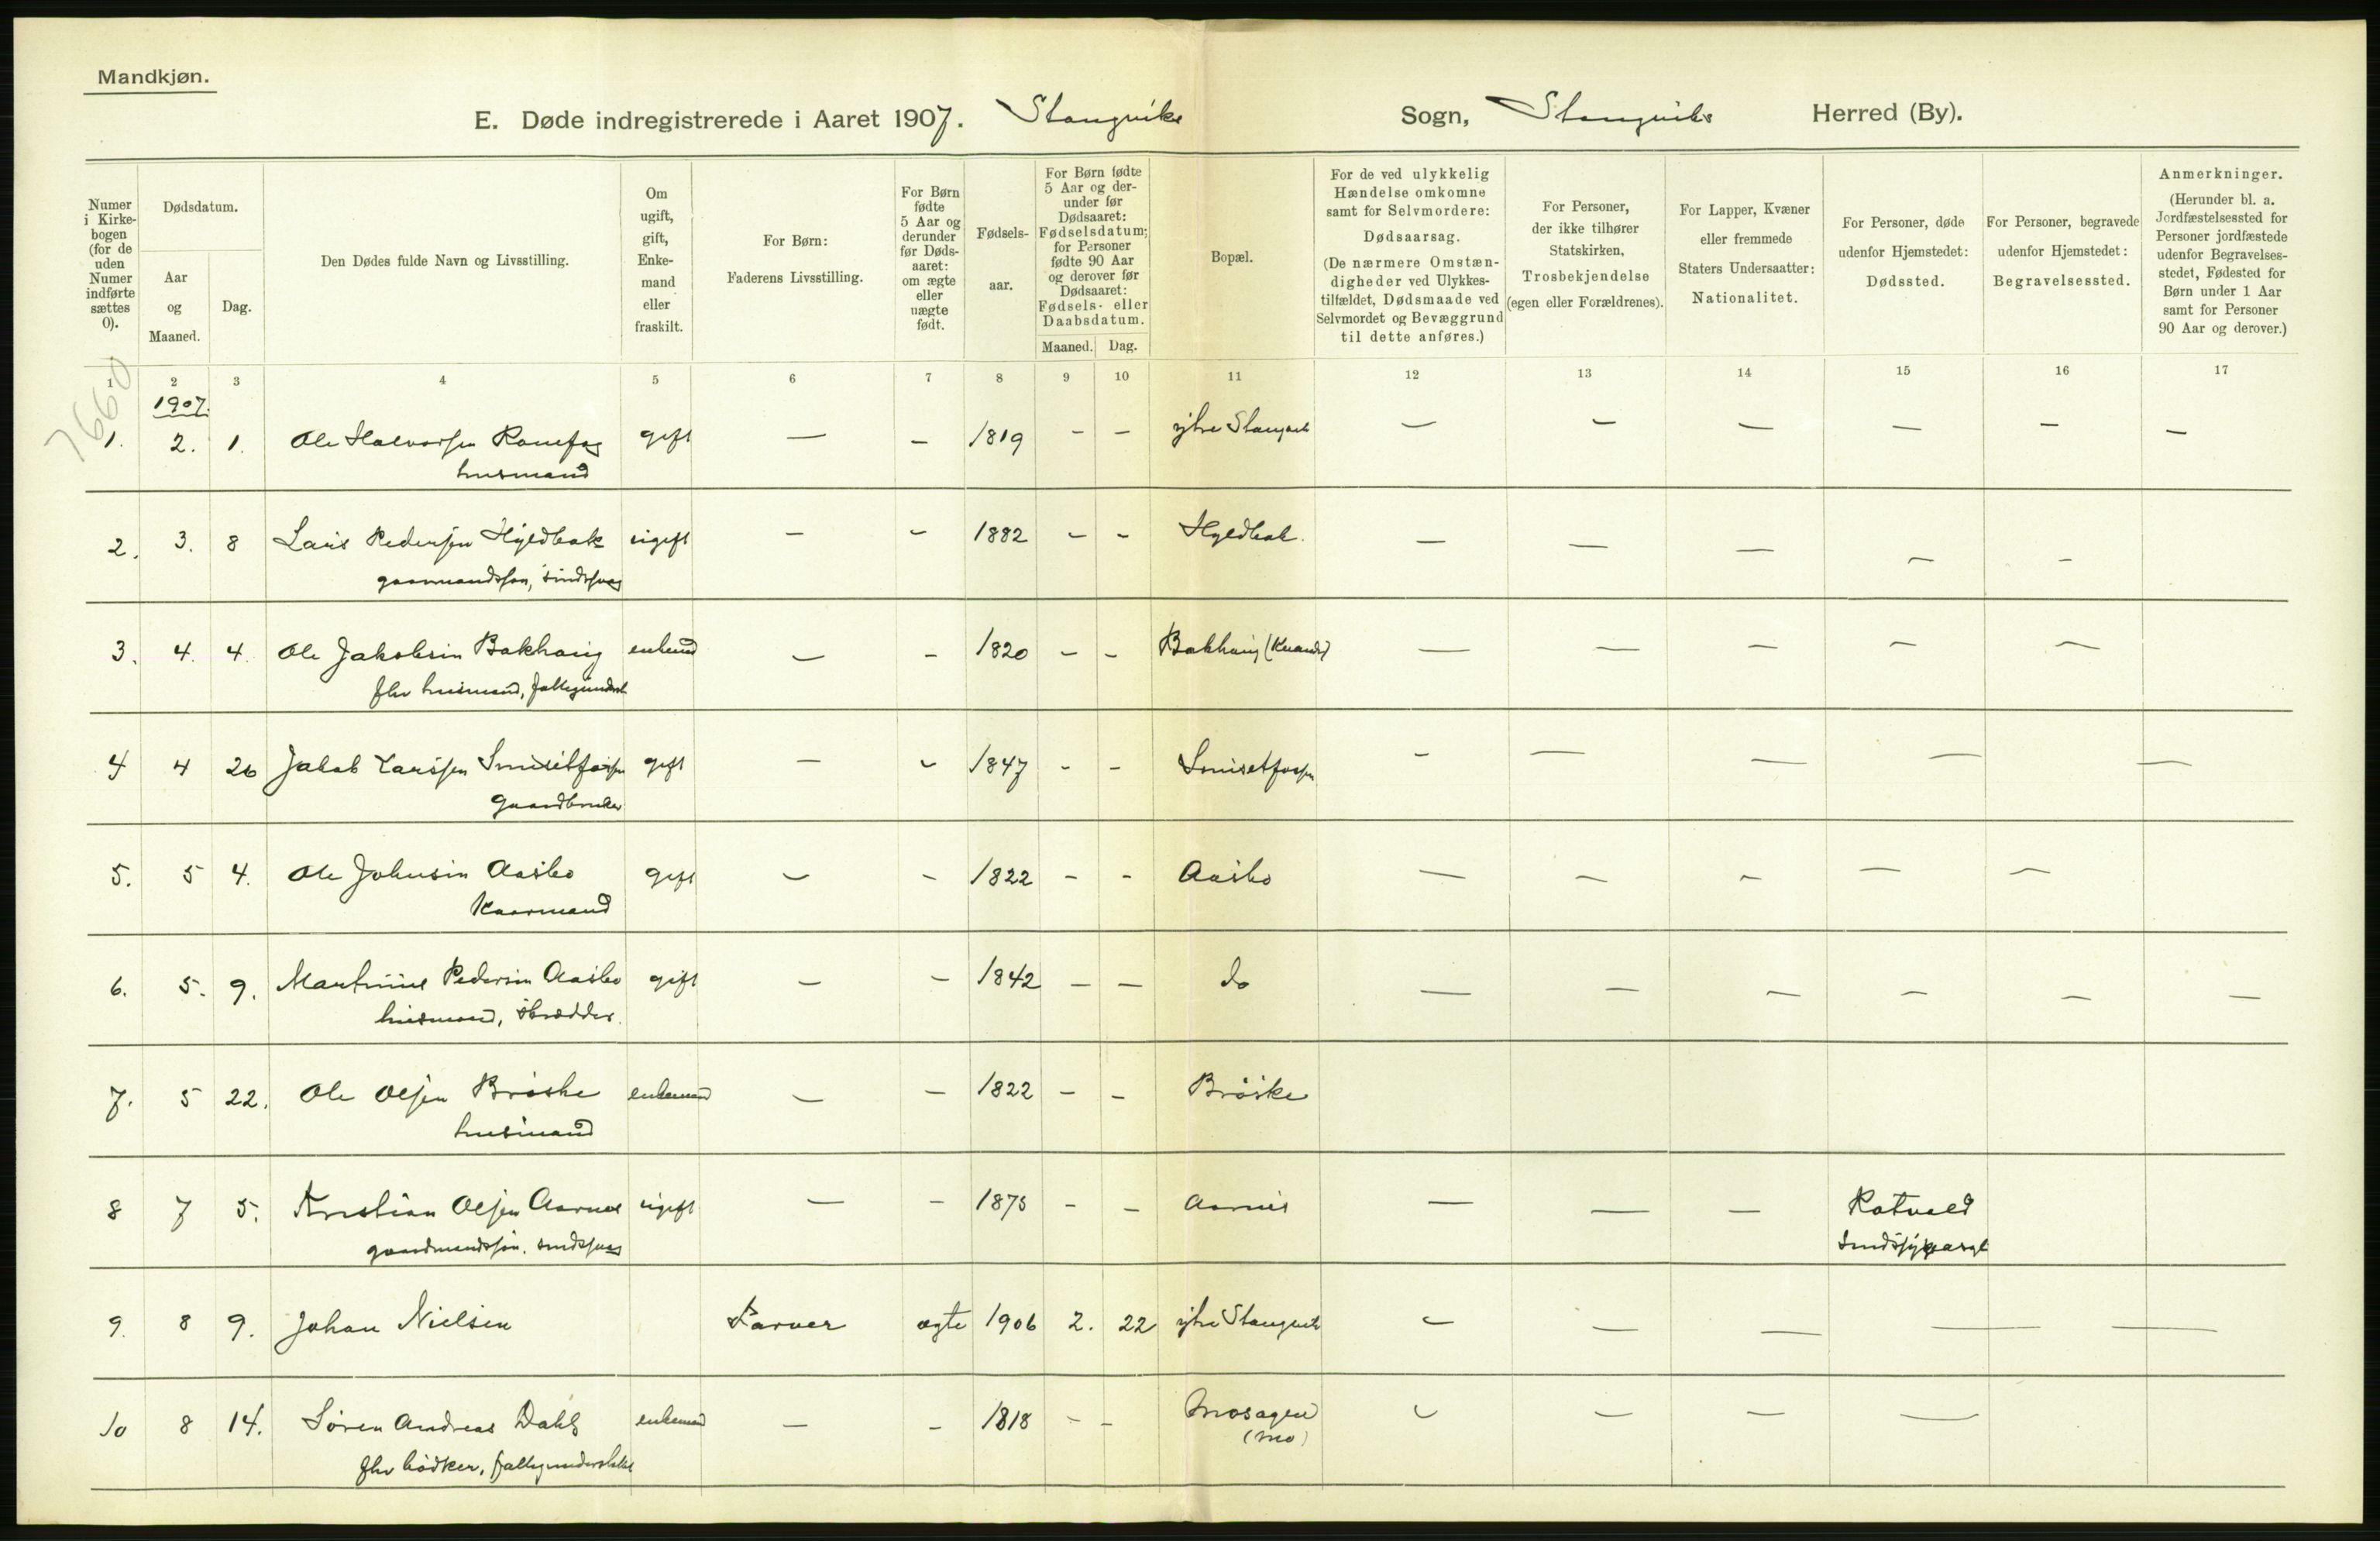 Mandkjøn.
E. Døde indregistrerede i Aaret 1907. Stangviks Sogn, Stangviks Herred (By).
Numer i Kirke-bogen (for de uden Numer indførte sættes 0).
Dødsdatum.
Aar og Maaned.
Dag.
Den Dødes fulde Navn og Livsstilling.
Om ugift, gift, Enke-mand eller fraskilt.
For Børn: Faderens Livsstilling.
For Børn fødte 5 Aar og derunder før Døds-aaret: om ægte eller uægte født.
Fødsels-aar.
For Børn fødte 5 Aar og der-under før Dødsaaret: Fødselsdatum; for Personer fødte 90 Aar og derover før Dødsaaret: Fødsels- eller Daabsdatum.
Maaned. Dag.
Bopæl.
For de ved ulykkelig Hændelse omkomne samt for Selvmordere: Dødsaarsag. (De nærmere Omstæn-digheder ved Ulykkes-tilfældet, Dødsmaade ved Selvmordet og Bevæggrund til dette anføres.)
For Personer, der ikke tilhører Statskirken, Trosbekjendelse (egen eller Forældrenes).
For Lapper, Kvæner eller fremmede Staters Undersaatter: Nationalitet.
For Personer, døde udenfor Hjemstedet: Dødssted.
For Personer, begravede udenfor Hjemstedet: Begravelsessted.
Anmerkninger. (Herunder bl. a. Jordfæstelsessted for Personer jordfæstede udenfor Begravelses-stedet, Fødested for Børn under 1 Aar samt for Personer 90 Aar og derover.)
1 2 3 4 5 6 7 8 9 10 11 12 13 14 15 16 17
7660
1907.
1. 2. 1. Ole Halvorsen gift — — 1819 — — ytre Stangvik — — — — — —
husmand
2. 3. 8 Lars Pedersen Hyldbak ugift — — 1882 — — Hyldbak. — — — — —
gaarmandssøn, sindssvag
3. 4. 4. Ole Jakobsen Bakhaug enkemd — — 1820 — — Bakhaug (Kvande) — — — — —
fhv husmand, fattigunderst
4 4 26 Jakob Larssen Smisetfossen gift — — 1847 — — Smisetfossen — — — — —
Gaardbruker
5. 5 4. Ole Johnsen Aasbo gift — — 1822 — — Aasbo — — — — —
Kaarmand
6. 5. 9. Martinus Pedersen Aasbo gift — — 1842 — — do — — — — — —
husmand, skrædder.
7. 5 22. Ole Olsen Brøske enkemand — — 1822 — — Brøske
husmand
8 7 5. Kristian Olsen Aarnes ugift — — 1875 — — Aarnes — — — Rotvold
gaardmandssøn. sindssvag sindssygeasyl
9. 8 9. Johan Nielsen Farver ægte 1906 2. 22 ytre Stangvik — — — — —
10 8 14. Søren Andreas Dahl enkemand — — 1818 — — Mosagen — — — —
(Mo)
fhv bødker, fattigunderstøttet